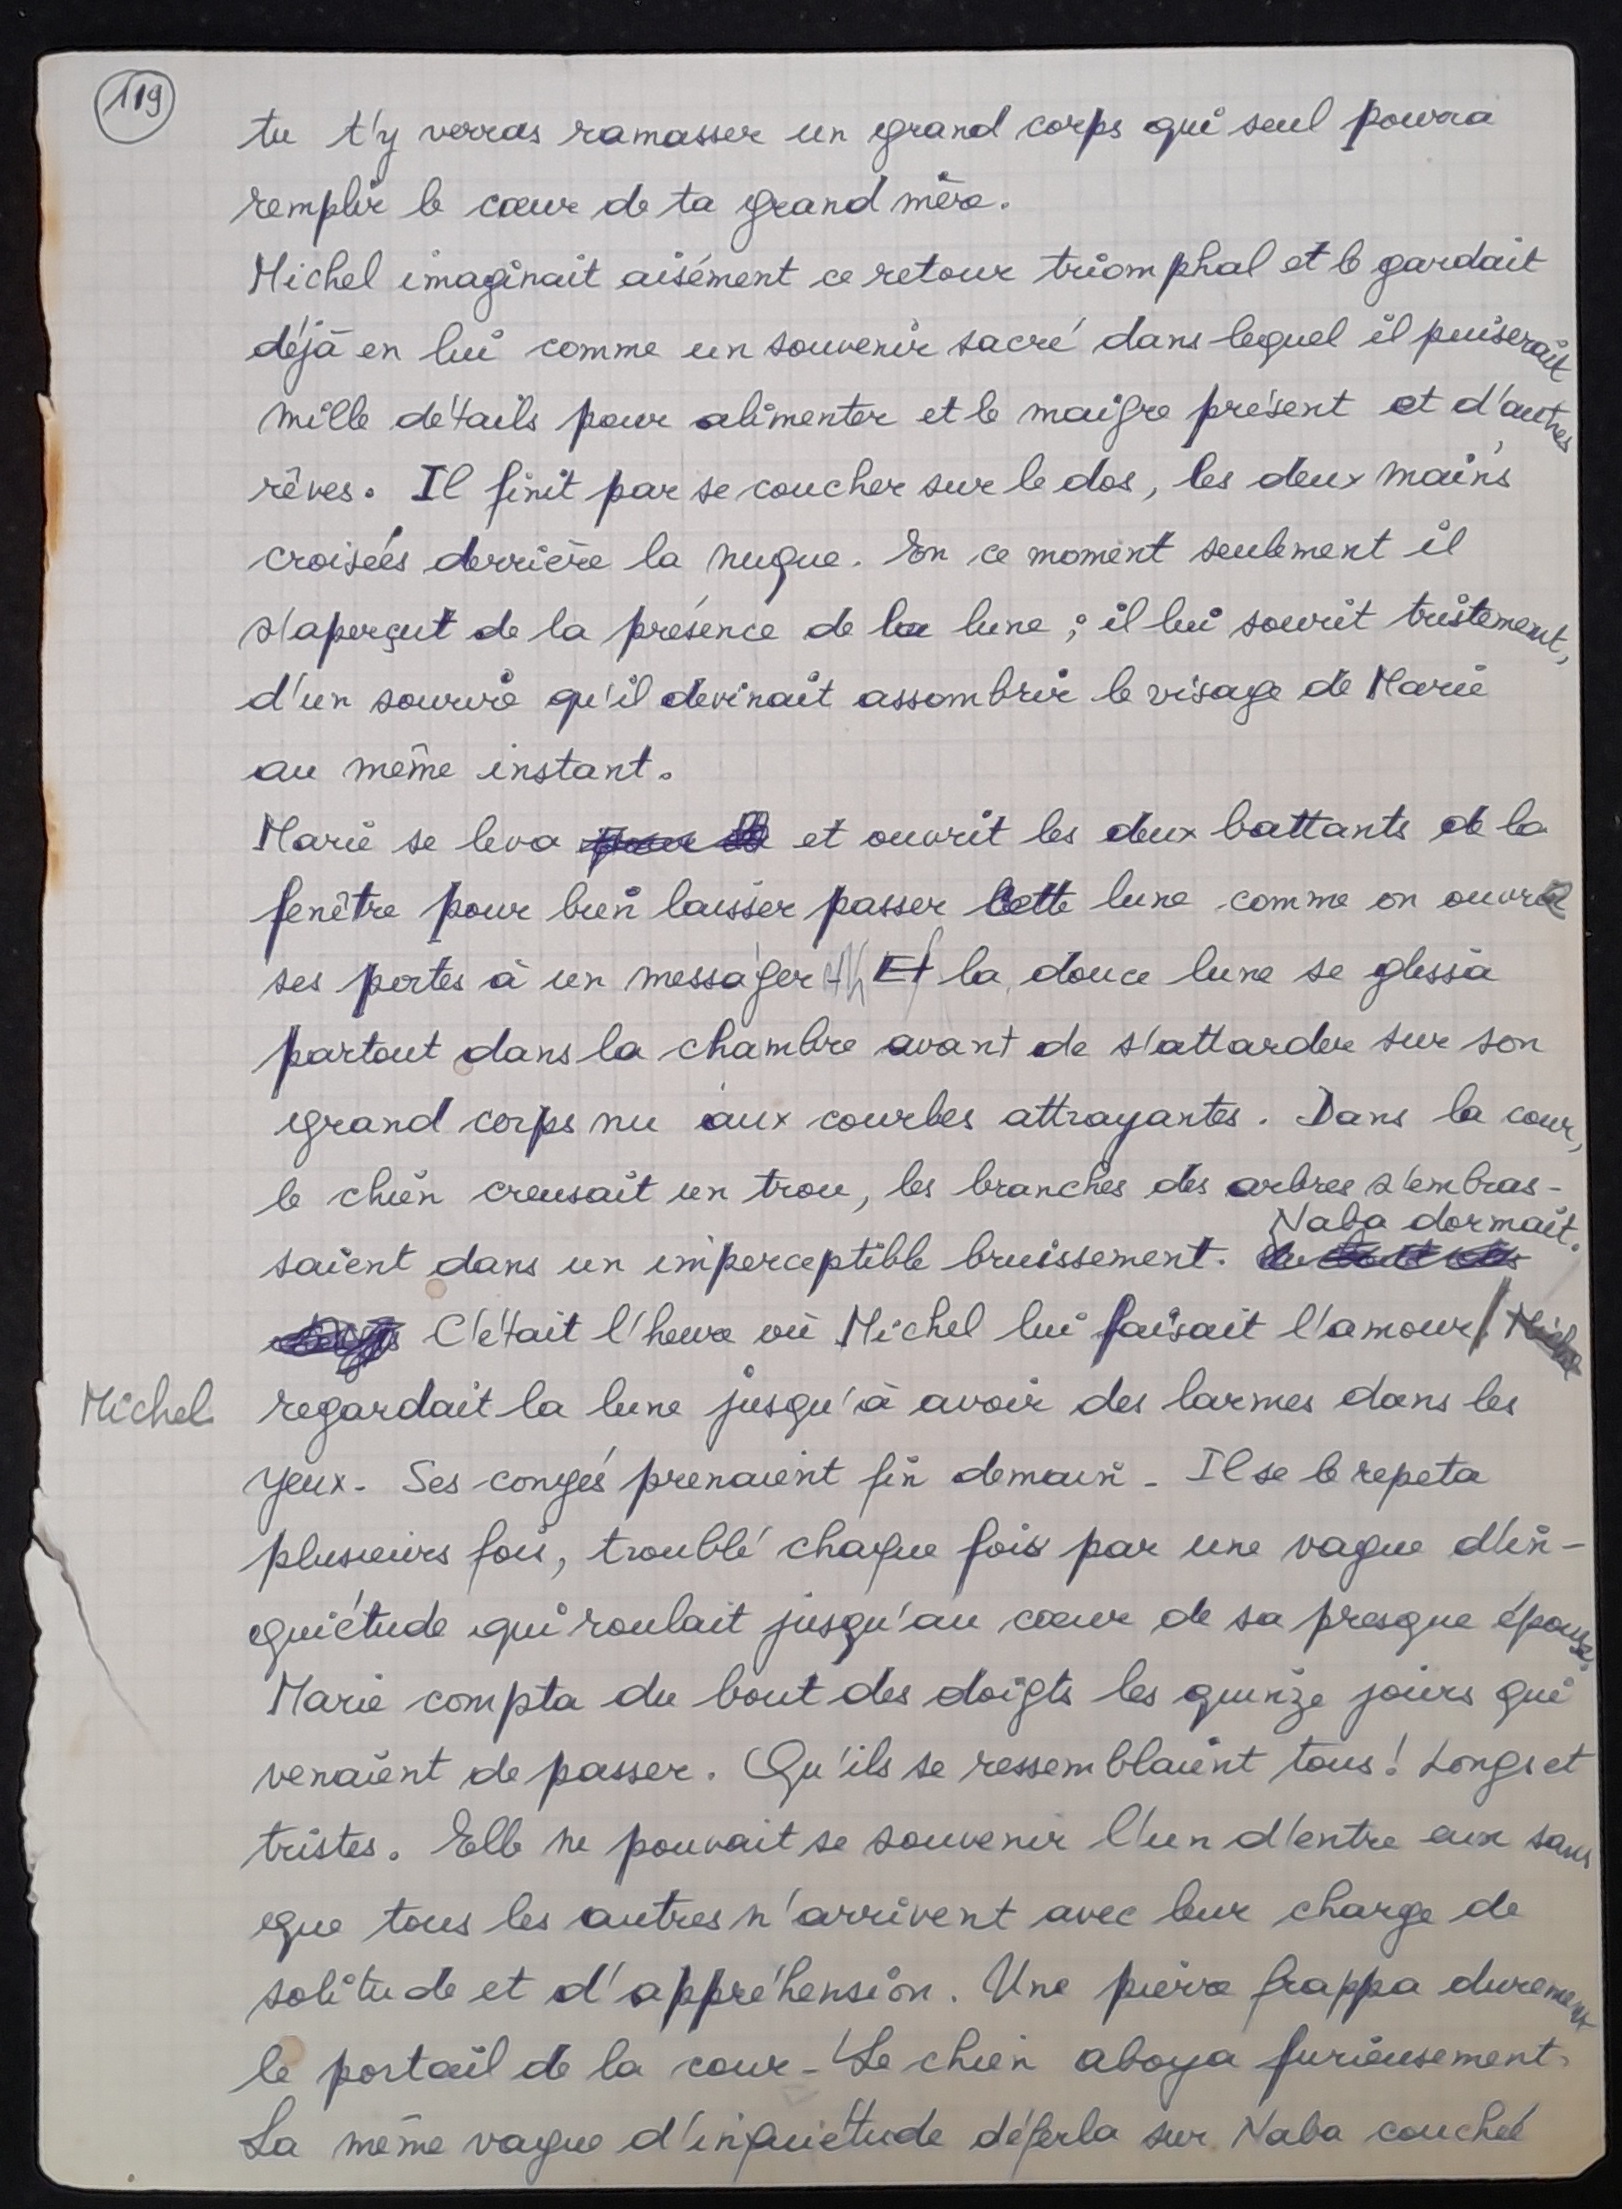 119
tu t'y verras ramasser un grand corps qui seul pourra
remplir le cœur de ta grand mère.
Michel imaginait aisément ce retour triomphal et le gardait
déjà en lui comme un souvenir sacré dans lequel il puiserait
mille détails pour alimenter et le maigre présent et d'autres
rêves. Il finit par se coucher sur le dos, les deux mains
croisées derrière la nuque. En ce moment seulement il
s'aperçut de la présence de la lune ; il lui sourit tristement,
d'un sourire qu'il devinait assombrir le visage de Marie
au même instant.
Marie se leva et ouvrit les deux battants de la
fenêtre pour bien laisser passer cette lune comme on ouvre
ses portes à un messager Et la douce lune se glissa
partout dans la chambre avant de s'attarder sur son
grand corps nu aux courbes attrayantes. Dans la cour,
le chien creusait un trou, les branches des arbres s'embras-
Naba dormait.
saient dans un imperceptible bruissement.
C'était l'heure où Michel lui faisait l'amour.
Michel regardait la lune jusqu'à avoir des larmes dans les
yeux. Ses congés prenaient fin demain - Il se le repeta
plusieurs fois, troublé chaque fois par une vague d'in-
quiétude qui roulait jusqu'au cœur de sa presque épouse.
Marie compta du bout des doigts les quinze jours qui
venaient de passer. Qu'ils se ressemblaient tous! Longs et
tristes. Elle ne pouvait se souvenir l'un d'entre eux sans
que tous les autres n'arrivent avec leur charge de
solitude et d'appréhension. Une pierre frappa durement
le portail de la cour - Le chien aboya furieusement.
La même vague d'inquiétude déferla sur Naba couché